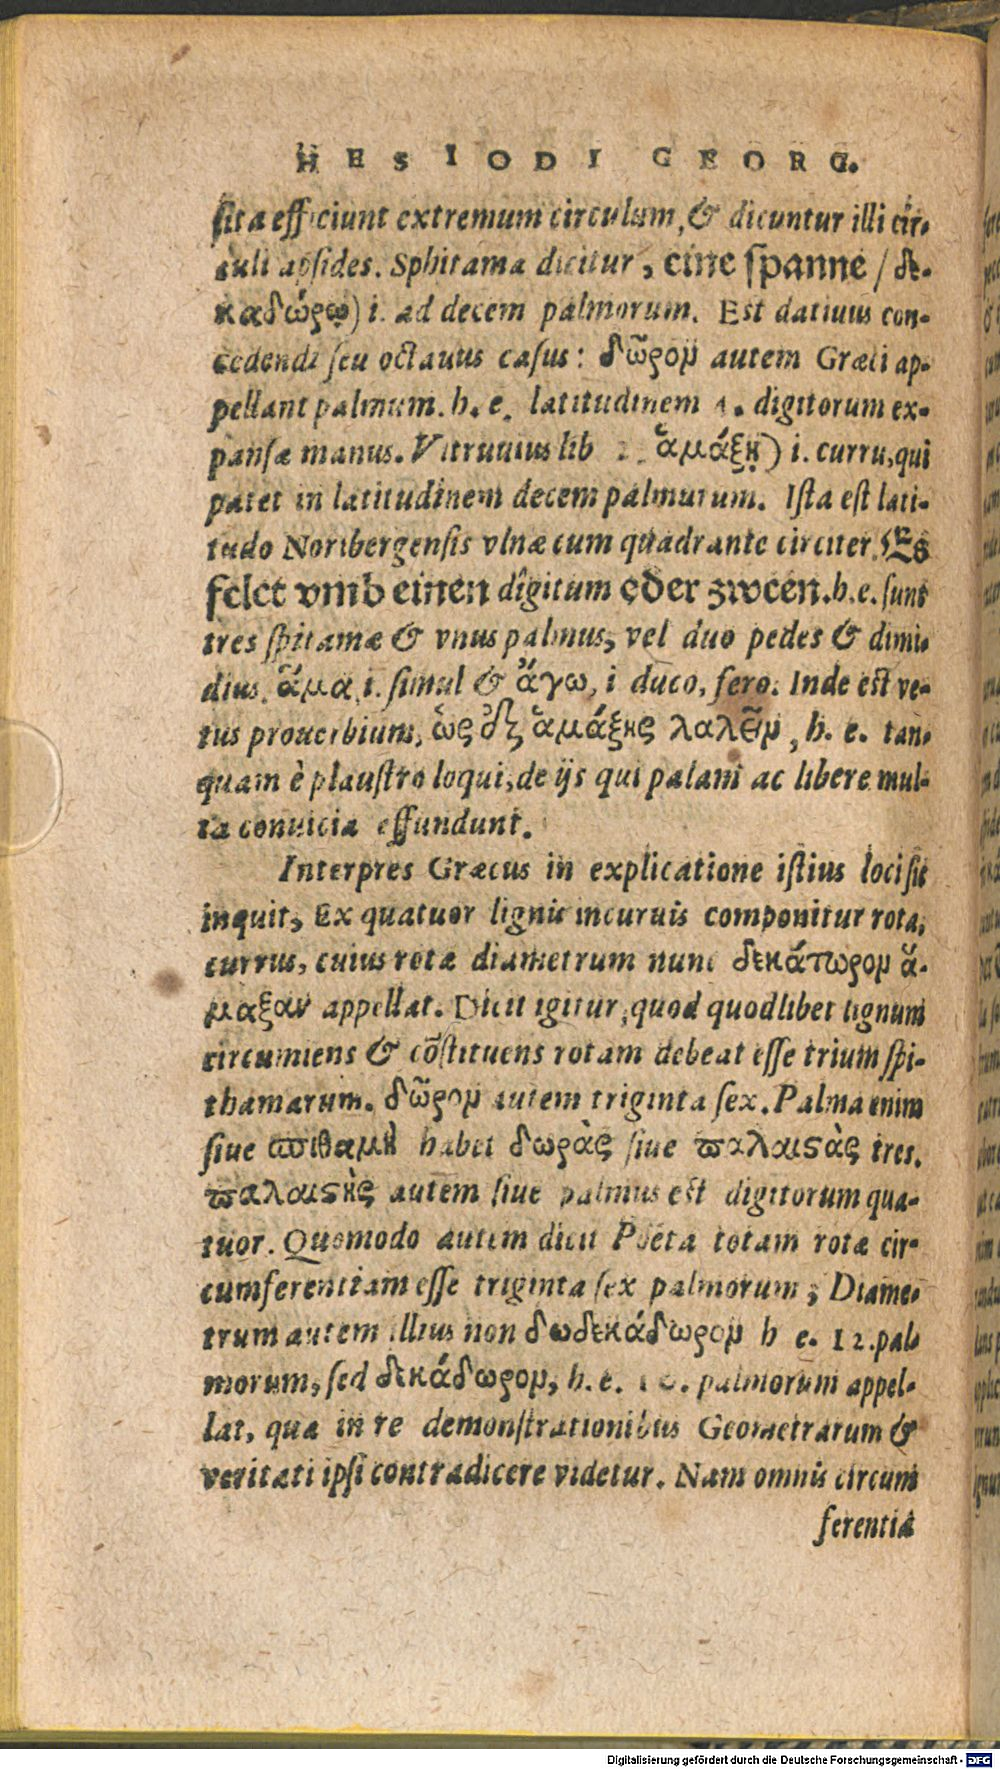 HESIODI GEORG.
sita efficiunt extremum circulum, & dicuntur illi cir-
culi apsides. Sphitama dicitur, eine spanne / δε-
καδώρῳ) i. ad decem palmorum. Est datiuus con-
cedendi seu octauus casus: δῶρον autem Græci ap-
pellant palmum. h. e. latitudinem 4. digitorum ex-
pansæ manus. Vitruuius lib 2. ἁμάξῃ) i. curru, qui
patet in latitudinem decem palmorum. Ista est lati-
tudo Noribergensis vlnæ cum quadrante circiter. Es
felet vmb einen digitum oder zween. h. e. sunt
tres spitamæ & vnus palmus, vel duo pedes & dimi-
dius. ἅμα, i. simul & ἄγω, i duco, fero. Inde est ve-
tus prouerbium, ὡς ἐξ ἁμάξης λαλεῖν, h. e. tan-
quam è plaustro loqui, de ijs qui palam ac libere mul-
ta conuicia effundunt.
Interpres Græcus in explicatione istius loci sic
inquit, Ex quatuor lignis incuruis componitur rota,
currus, cuius rotæ diametrum nunc δεκάπωρον ἅ-
μαξαν appellat. Dicit igitur, quod quodlibet lignum
circumiens & cõstituens rotam debeat esse trium spi-
thamarum. δῶρον autem triginta sex. Palma enim
siue σπιθαμὴ habet δωρὰς siue παλαιστὰς tres.
παλαιστὴς autem siue palmus est digitorum qua-
tuor. Quomodo autem dicit Poëta totam rotæ cir-
cumferentiam esse triginta sex palmorum; Diame-
trum autem illius non δωδεκάδωρον h e. 12. pal-
morum, sed δεκάδωρον, h. e. 10. palmorum appel-
lat, qua in re demonstrationibus Geometrarum &
veritati ipsi contradicere videtur. Nam omnis circum
ferentia
Digitalisierung gefördert durch die Deutsche Forschungsgemeinschaft - DFG